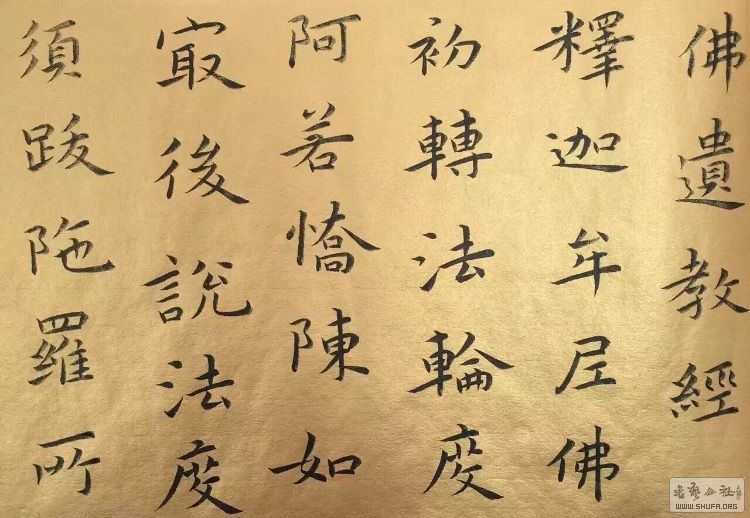 佛遺教經
釋迦牟尼佛
初轉法輪度
阿若憍陳如
㝡後說法度
須跋陁羅所
書藝公社
WWW.SHUFA.ORG